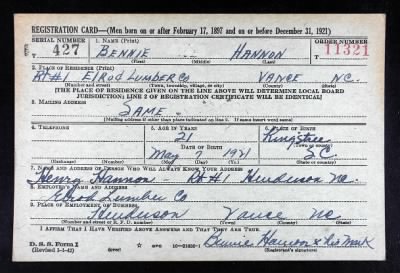 REGISTRATION CARD—(Men born on or after February 17, 1897 and on or before December 31, 1921)
SERIAL NUMBER 1. NAME (Print) ORDER NUMBER
427 BENNIE - HANNON 11321
(First) (Middle) (Last)
2. PLACE OF RESIDENCE (Print)
Rt#1 Elrod Lumber Co VANCE N.C.
(Number and street) (Town, township, village, or city) (County) (State)
[THE PLACE OF RESIDENCE GIVEN ON THE LINE ABOVE WILL DETERMINE LOCAL BOARD
JURISDICTION; LINE 2 OF REGISTRATION CERTIFICATE WILL BE IDENTICAL]
3. MAILING ADDRESS
SAME
[Mailing address if other than place indicated on line 2. If same insert word same]
4. TELEPHONE 5. AGE IN YEARS 6. PLACE OF BIRTH
21 Kingstree
DATE OF BIRTH (Town or county)
May 7 1921 S.C.
(Exchange) (Number) (Mo.) (Day) (Yr.) (State or country)
7. NAME AND ADDRESS OF PERSON WHO WILL ALWAYS KNOW YOUR ADDRESS
Henry Hannon - Rt#1 Henderson N.C.
8. EMPLOYER'S NAME AND ADDRESS
Elrod Lumber Co
9. PLACE OF EMPLOYMENT OR BUSINESS
Henderson Vance N.C.
(Number and street or R. F. D. number) (Town) (County) (State)
I AFFIRM THAT I HAVE VERIFIED ABOVE ANSWERS AND THAT THEY ARE TRUE.
D. S. S. Form 1
(Revised 5-1-42) (over) Bennie Hannon x his mark
(Registrant's signature)